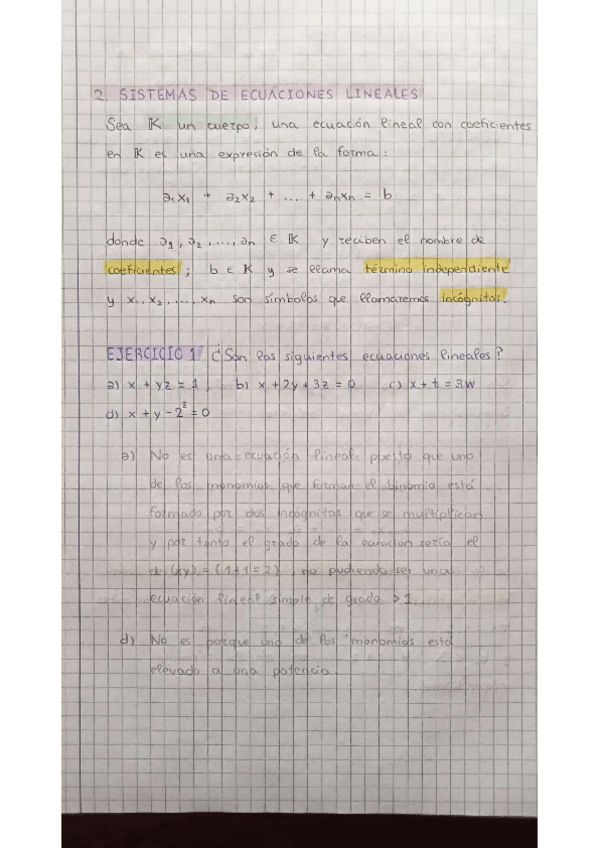 2. SISTEMAS DE ECUACIONES LINEALES
Sea K un cuerpo, una ecuación lineal con coeficientes
en K es una expresión de la forma:
a₁x₁ + a₂x₂ + ... + aₙxₙ = b
donde a₁, a₂, ..., aₙ ∈ K y reciben el nombre de
coeficientes; b ∈ K y se llama término independiente
y x₁, x₂, ..., xₙ son símbolos que llamaremos incógnitas.
EJERCICIO 1 ¿Son las siguientes ecuaciones lineales?
a) x + yz = 1, b) x + 2y + 3z = 0 c) x + t = 3w
d) x + y - 2² = 0
a) No es una ecuación lineal puesto que uno
de los monomios que forman el binomio está
formado por dos incógnitas que se multiplican
y por tanto el grado de la sería el
de = (1+1=2), no pudiendo ser una
ecuación lineal simple de grado > 1
d) No es porque uno de los monomios está
elevado a una potencia.